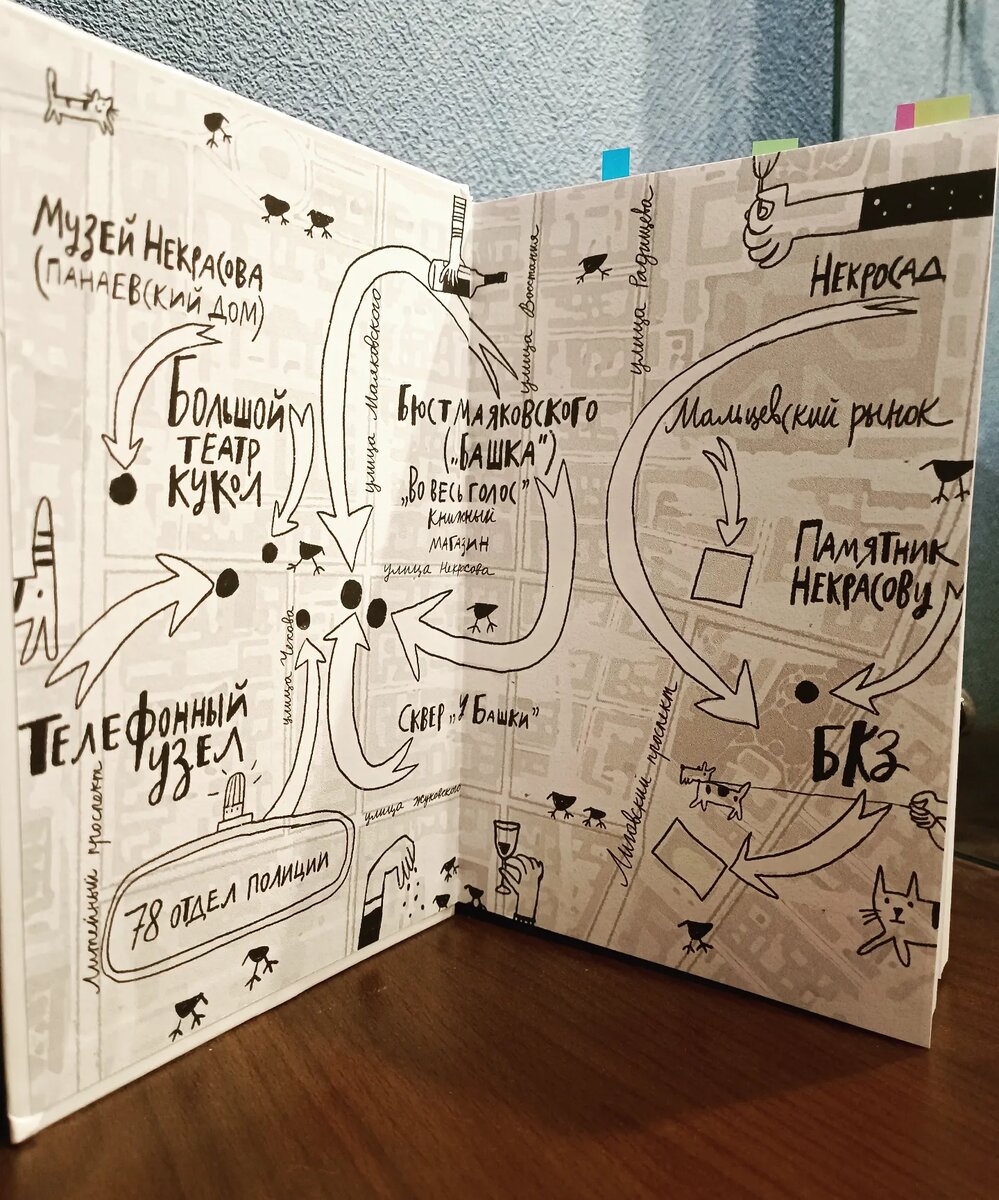 Музей Некрасова
(Панаевский дом)
Большой
театр
кукол
улица Маяковского
Бюст Маяковского
(„Башка")
„Во весь голос"
книжный
магазин
улица Некрасова
Телефонный
узел
улица Чехова
Сквер „У Башки"
улица Жуковского
Литейный проспект
78 отдел полиции
улица Восстания
улица Радищева
Некросад
Мальцевский рынок
Памятник
Некрасову
БКЗ
Лиговский проспект